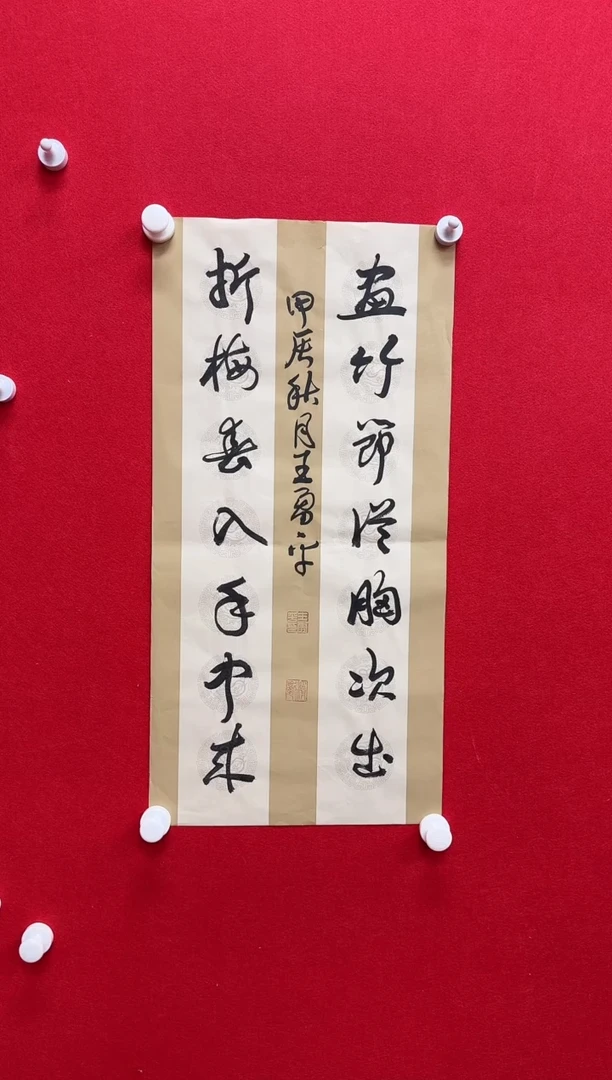 畫竹節從胸次出
折梅春入手中來
甲辰秋月王勇平